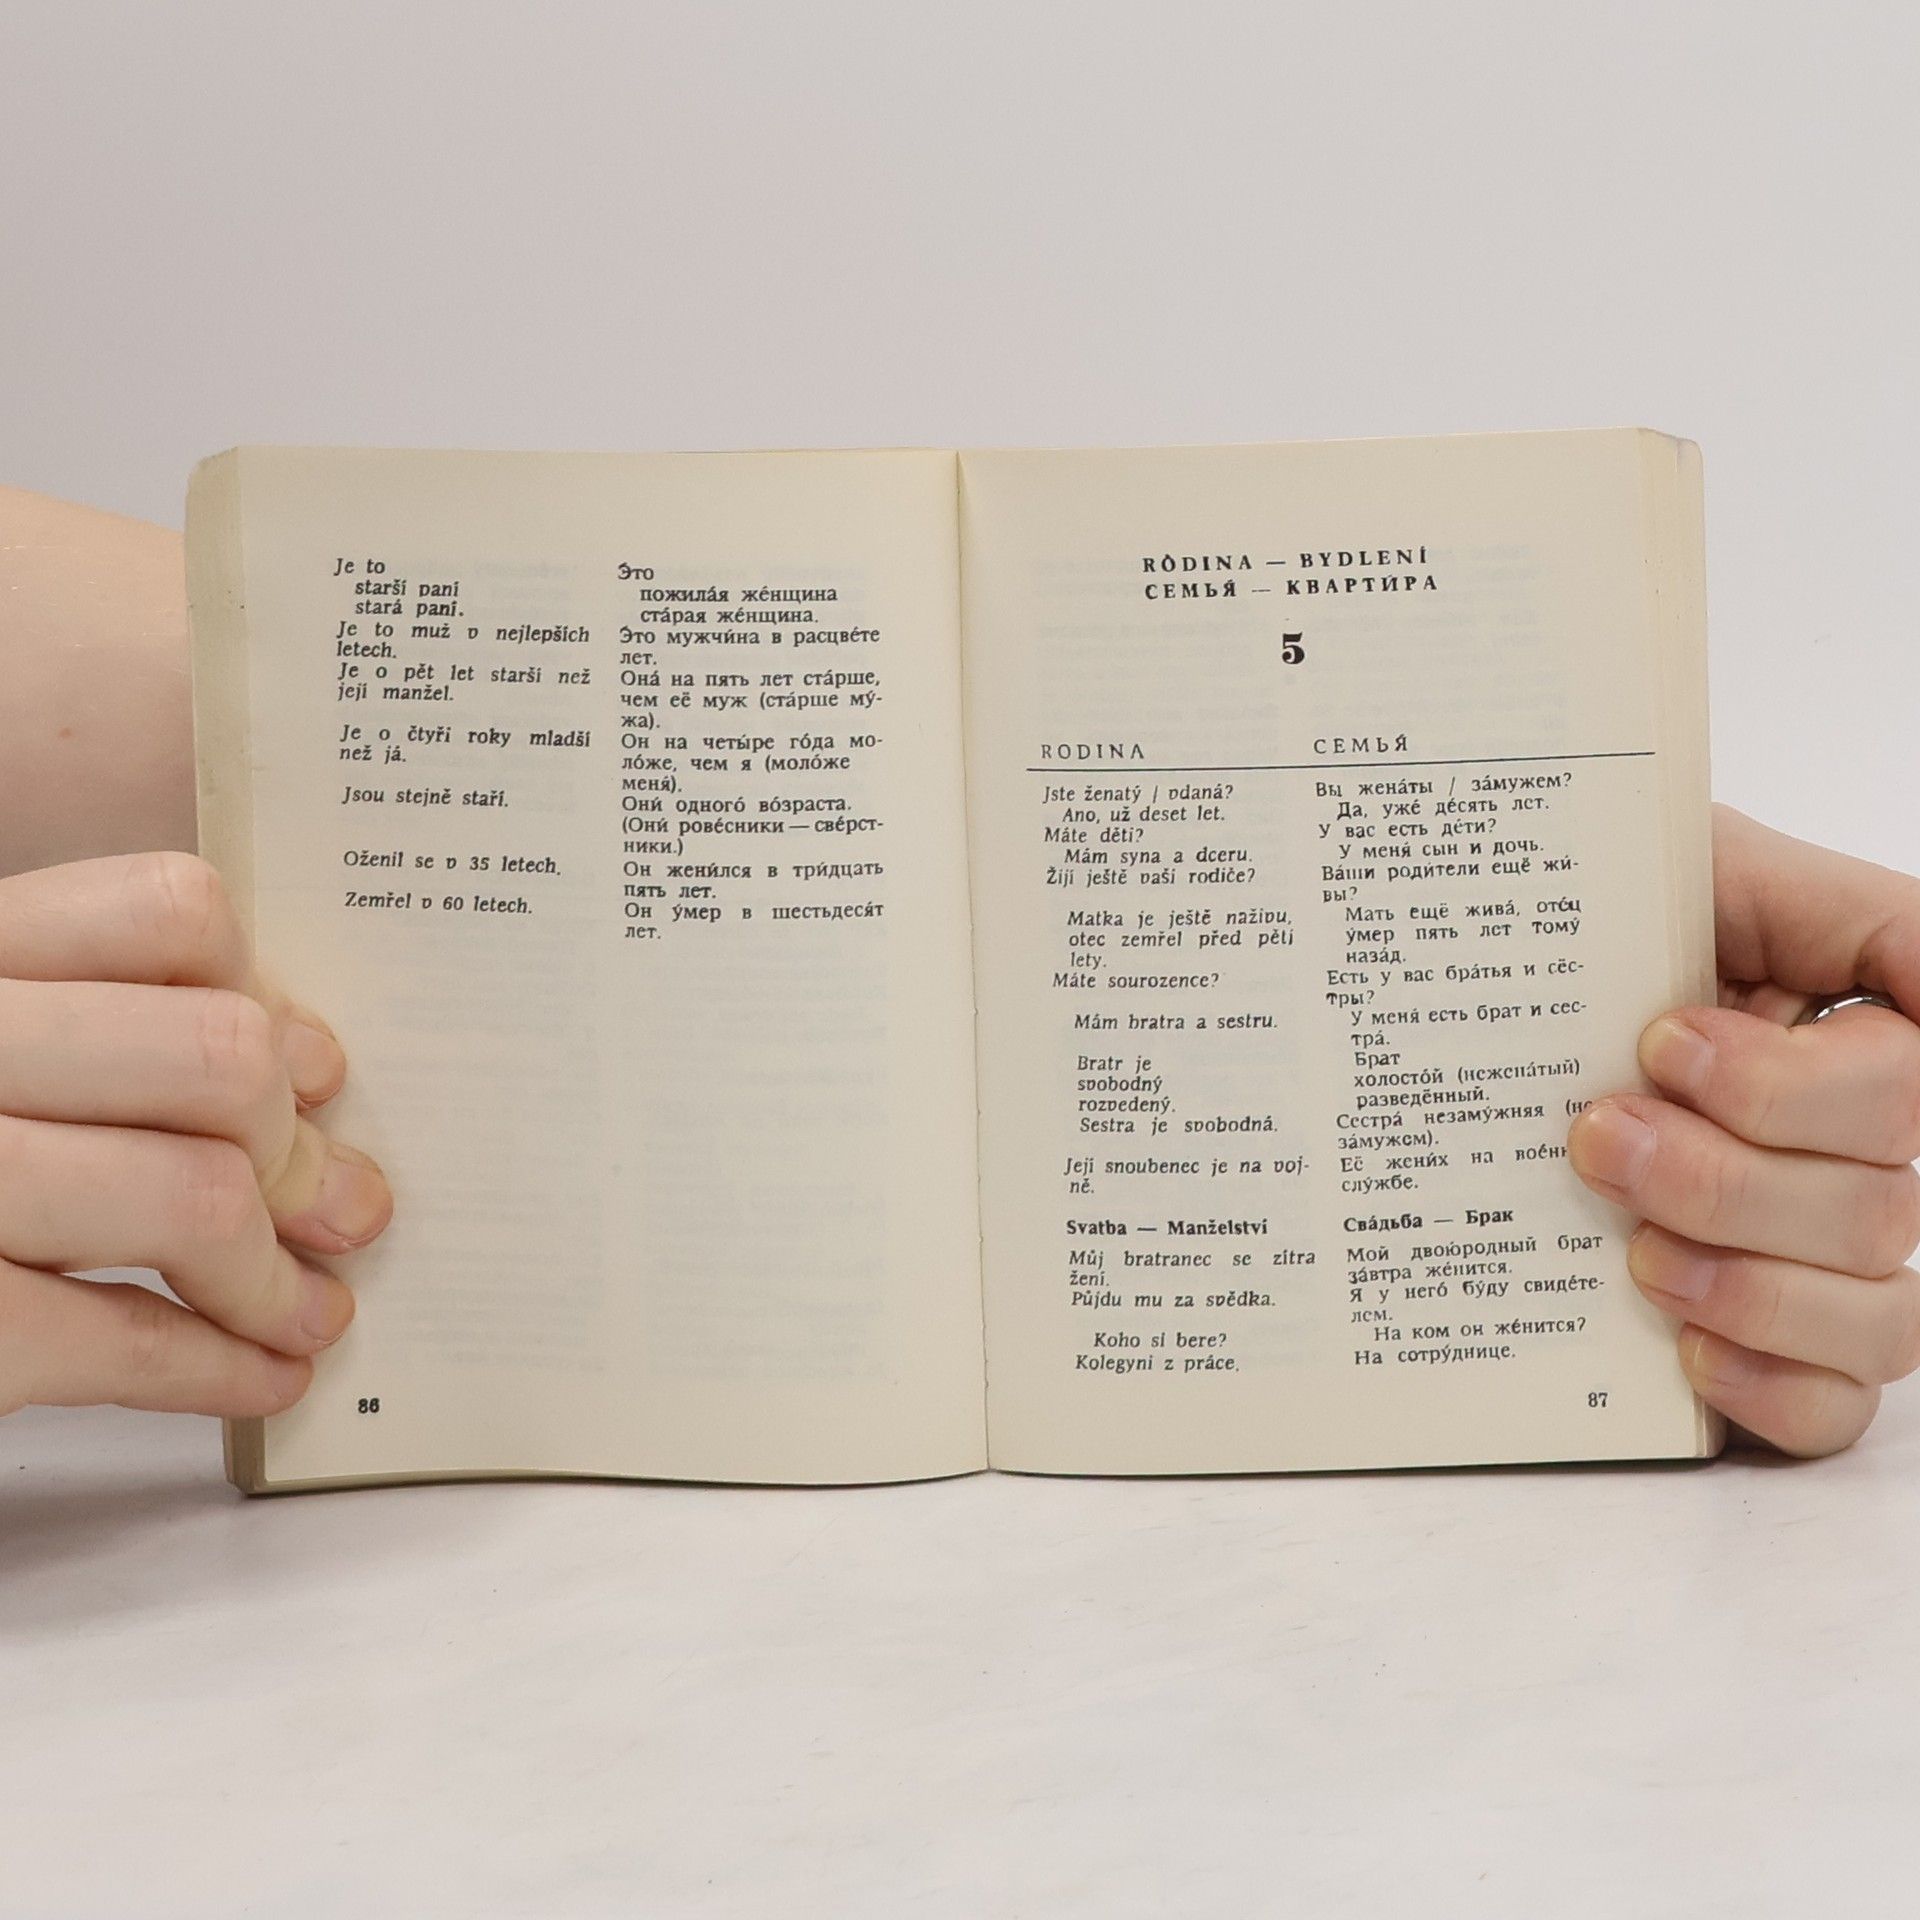 Je to
starší paní
stará paní.
Je to muž v nejlepších
letech.
Je o pět let starší než
její manžel.
Je o čtyři roky mladší
než já.
Jsou stejně staří.
Oženil se v 35 letech.
Zemřel v 60 letech.
Э́то
пожила́я же́нщина
ста́рая же́нщина.
Э́то мужчи́на в расцве́те
лет.
Она́ на пять лет ста́рше,
чем её муж (ста́рше му́-
жа).
Он на четы́ре го́да мо-
ло́же, чем я (моло́же
меня́).
Они́ одного́ во́зраста.
(Они́ рове́сники — све́рст-
ники.)
Он жени́лся в три́дцать
пять лет.
Он у́мер в шестьдеся́т
лет.
86
RODINA — BYDLENÍ
СЕМЬЯ́ — КВАРТИ́РА
5
RODINA
СЕМЬЯ́
Jste ženatý / vdaná?
Ano, už deset let.
Máte děti?
Mám syna a dceru.
Žijí ještě vaši rodiče?
Matka je ještě naživu,
otec zemřel před pěti
lety.
Máte sourozence?
Mám bratra a sestru.
Bratr je
svobodný
rozvedený.
Sestra je svobodná.
Její snoubenec je na voj-
ně.
Svatba — Manželství
Můj bratranec se zítra
žení.
Půjdu mu za svědka.
Koho si bere?
Kolegyni z práce.
Вы жена́ты / за́мужем?
Да, уже́ де́сять лет.
У вас есть де́ти?
У меня́ сын и дочь.
Ва́ши роди́тели ещё жи́-
вы?
Мать ещё жива́, оте́ц
у́мер пять лет тому́
наза́д.
Есть у вас бра́тья и сёс-
тры?
У меня́ есть брат и сес-
тра́.
Брат
холосто́й (нежена́тый)
разведённый.
Сестра́ незаму́жняя (не
за́мужем).
Её жени́х на вое́нн
слу́жбе.
Сва́дьба — Брак
Мой двою́родный брат
за́втра же́нится.
Я у него́ бу́ду свиде́те-
лем.
На ком он же́нится?
На сотру́днице.
87